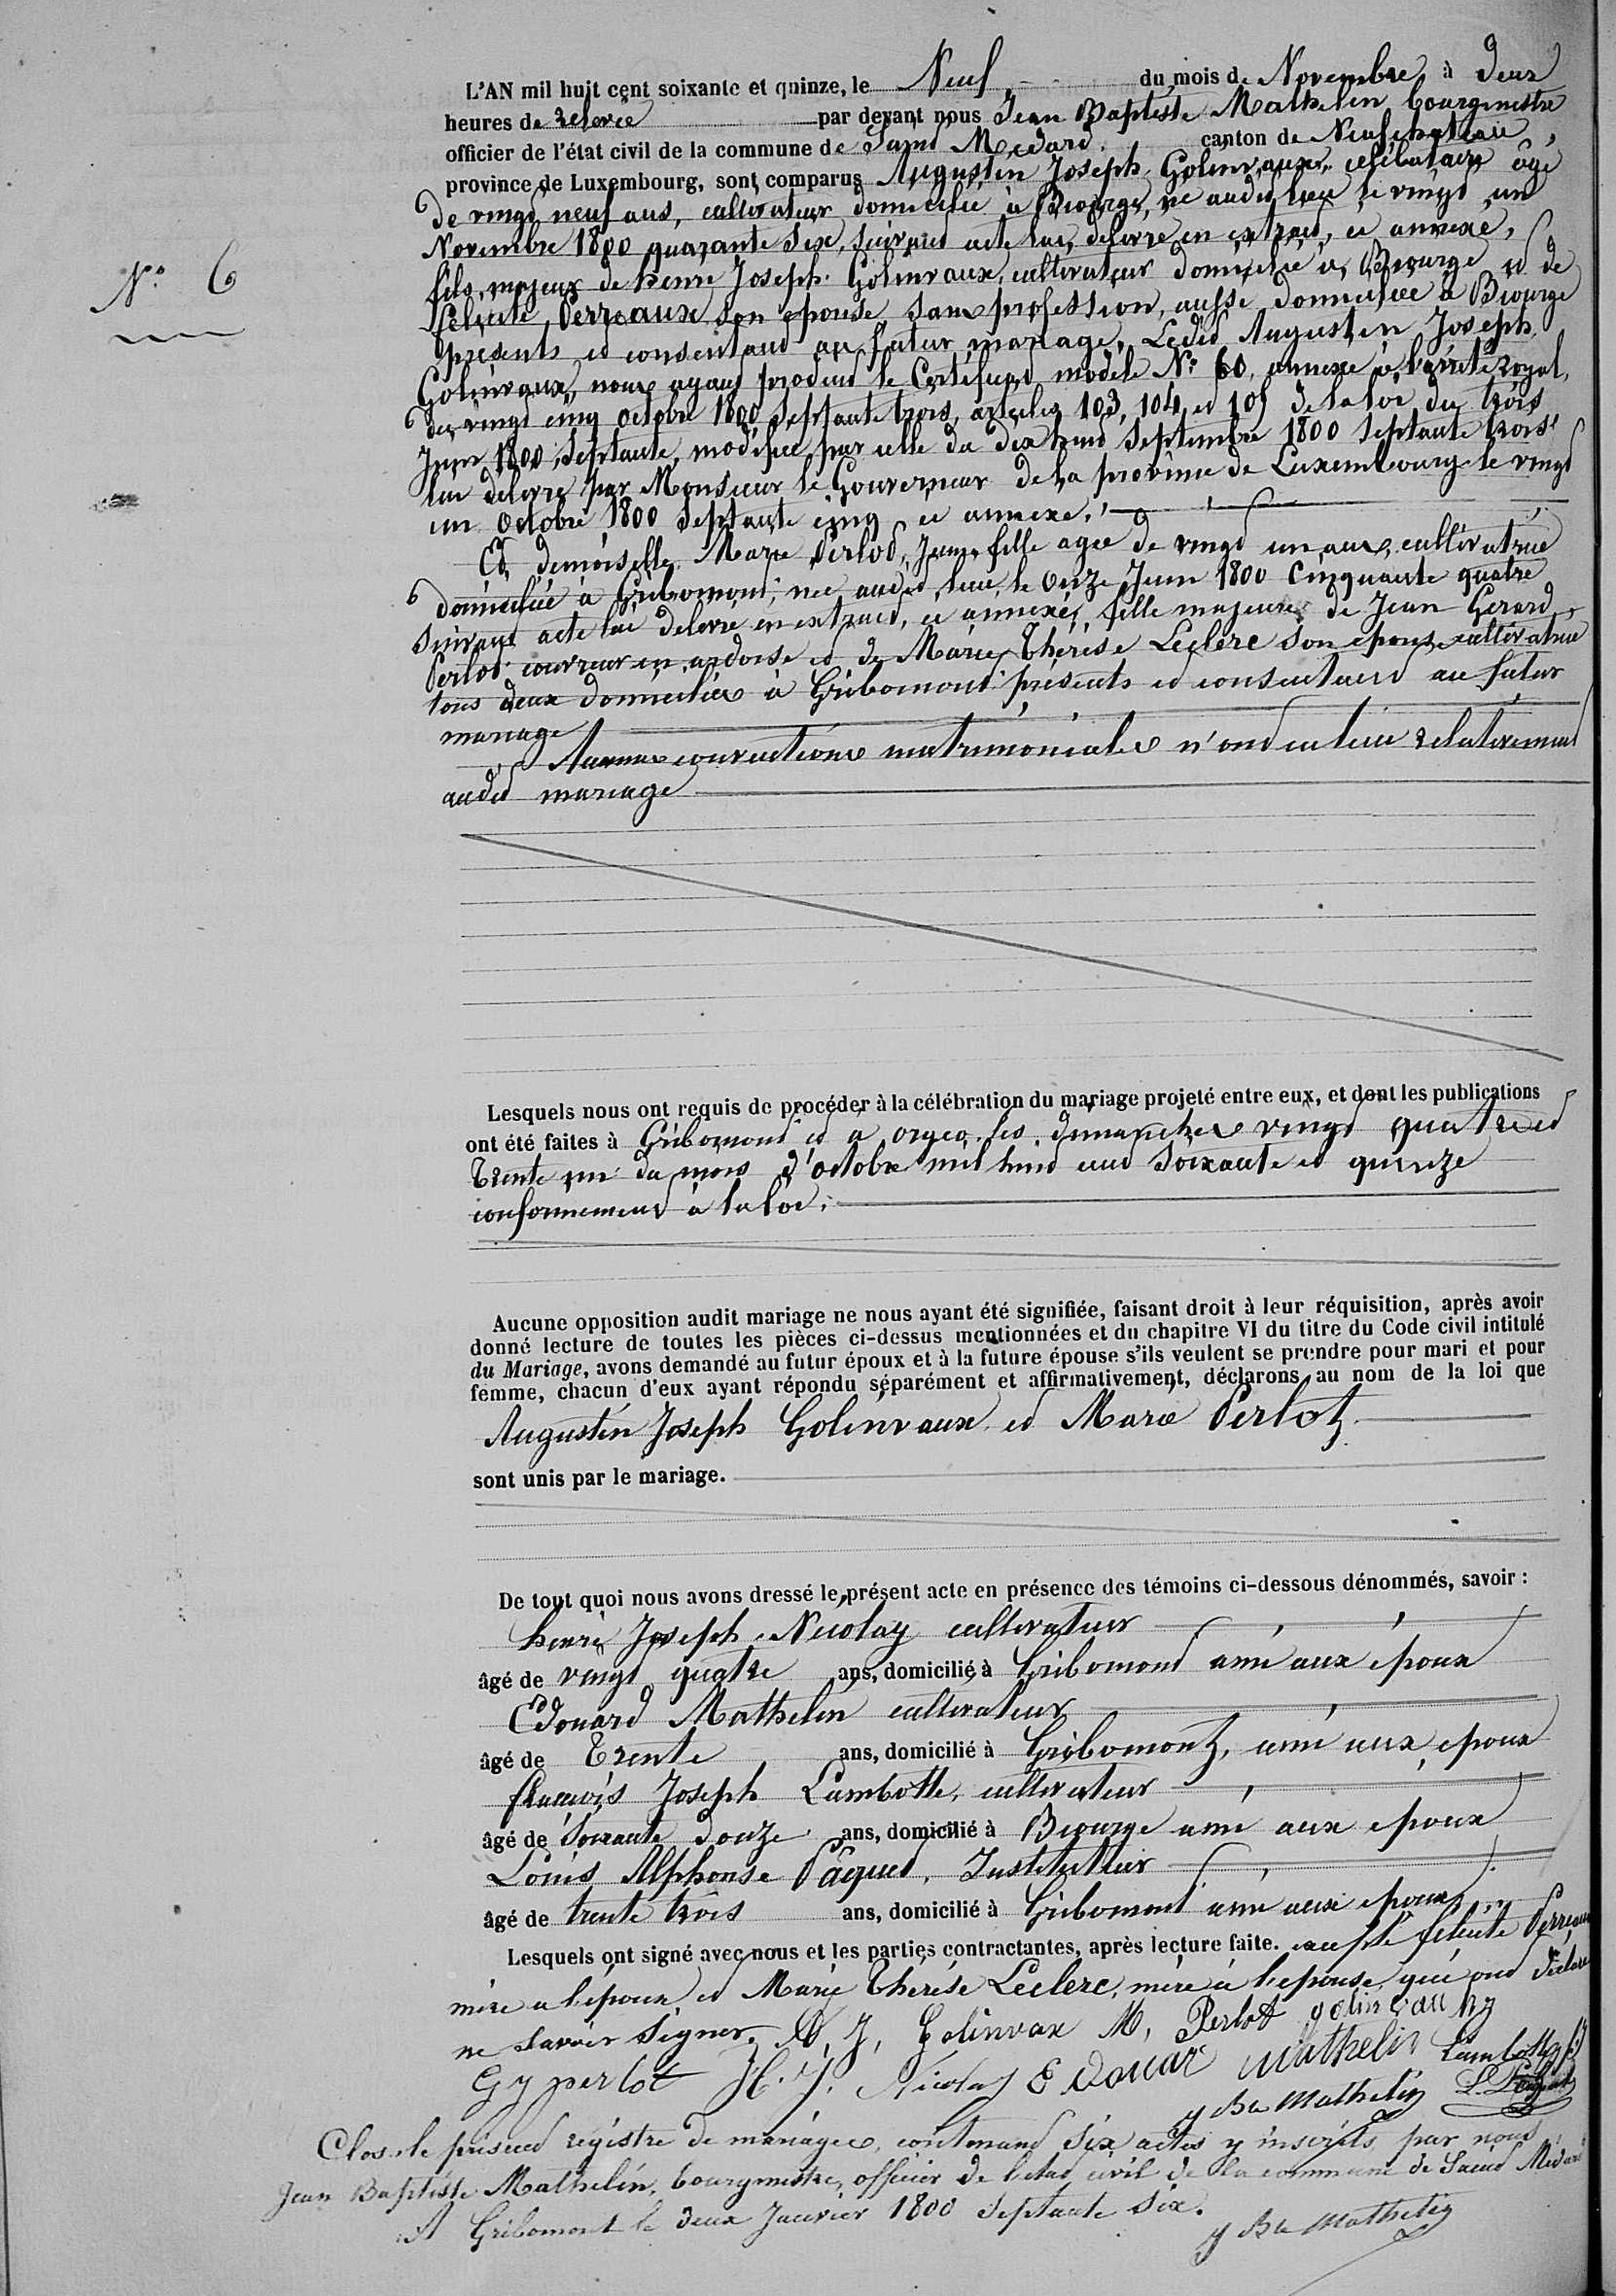 L'AN mil huit cent soixante et quinze, le Neuf du mois de Novembre à deux
heures de relevée par devant nous Jean Baptiste Mathelin bourgmestre
officier de l'état civil de la commune de Saint Médard canton de Neufchateau,
province de Luxembourg, sont comparus Augustin Joseph Golinvaux, célibataire âgé
de vingt neuf ans, cultivateur domicilié à Biourge, né audit lieu le vingt un
Novembre 1800 quarante six, suivant acte lui délivré en extrait, ci annexé,
fils majeur de henri Joseph Golinvaux, cultivateur domicilié à Biourge et de
félicité Perreaux son épouse sans profession, aussi domiciliée à Biourge
présents et consentant au futur mariage, Ledit Augustin Joseph
Golinvaux, nous ayant produit le Certificat modèle N° 60, annexé à l'arrêté royal,
du vingt cinq octobre 1800 septante trois, articles 103, 104 et 105 de la loi du trois
Juin 1800 septante, modifiée par celle du dix huit Septembre 1800 septante trois
lui délivré par Monsieur le Gouverneur de la province de Luxembourg le vingt
un Octobre 1800 septante cinq ci annexé.
Et demoiselle Marie Perlot, Jeune fille agée de vingt un ans, cultivatrice
domiciliée à Gribomont, née audit lieu le Onze Juin 1800 Cinquante quatre
suivant acte lui délivré en extrait, ci annexé, fille majeure de Jean Gerard
Perlot couvreur en ardoise et de Marie Thérèse Leclerc son épouse cultivatrice
tous deux domiciliés à Gribomont présents et consentant au futur
mariage
Aucunes conventions matrimoniales n'ont eu lieu relativement
audit mariage
Lesquels nous ont requis de procéder à la célébration du mariage projeté entre eux, et dont les publications
ont été faites à Gribomont et à orgeo les dimanches vingt quatre et
trente un du mois d'octobre mil huit cent soixante et quinze
conformément à la loi.
Aucune opposition audit mariage ne nous ayant été signifiée, faisant droit à leur réquisition, après avoir
donné lecture de toutes les pièces ci-dessus mentionnées et du chapitre VI du titre du Code civil intitulé
du Mariage, avons demandé au futur époux et à la future épouse s'ils veulent se prendre pour mari et pour
femme, chacun d'eux ayant répondu séparément et affirmativement, déclarons au nom de la loi que
Augustin Joseph Golinvaux et Marie Perlot
sont unis par le mariage.
De tout quoi nous avons dressé le présent acte en présence des témoins ci-dessous dénommés, savoir :
henri Joseph Nicolay cultivateur
âgé de vingt quatre ans, domicilié à Gribomont ami aux époux
Edouard Mathelin cultivateur
âgé de Trente ans, domicilié à Gribomont, ami aux époux
françois Joseph Lambotte, cultivateur
âgé de Soixante douze ans, domicilié à Biourge ami aux époux
Louis Alphonse Pâquet, Instituteur
âgé de trente trois ans, domicilié à Gribomont ami aux époux
Lesquels ont signé avec nous et les parties contractantes, après lecture faite. excepté félicité Perreaux
mère à l'époux et Marie Thérèse Leclerc, mère à l'épouse qui ont déclaré
ne savoir signer. A, J, Golinvax M, Perlot golinvau hj
G J perlot H. J. Nicolay Edouar Mathelin Lambotte fj
J Bte Mathelin
Clos le présent régistre de mariages, contenant Six actes y inscrits par nous
Jean Baptiste Mathelin, bourgmestre, officier de l'état civil de la commune de Saint Médard
A Gribomont le deux Janvier 1800 Septante Six.
J Bte Mathelin
N° 6